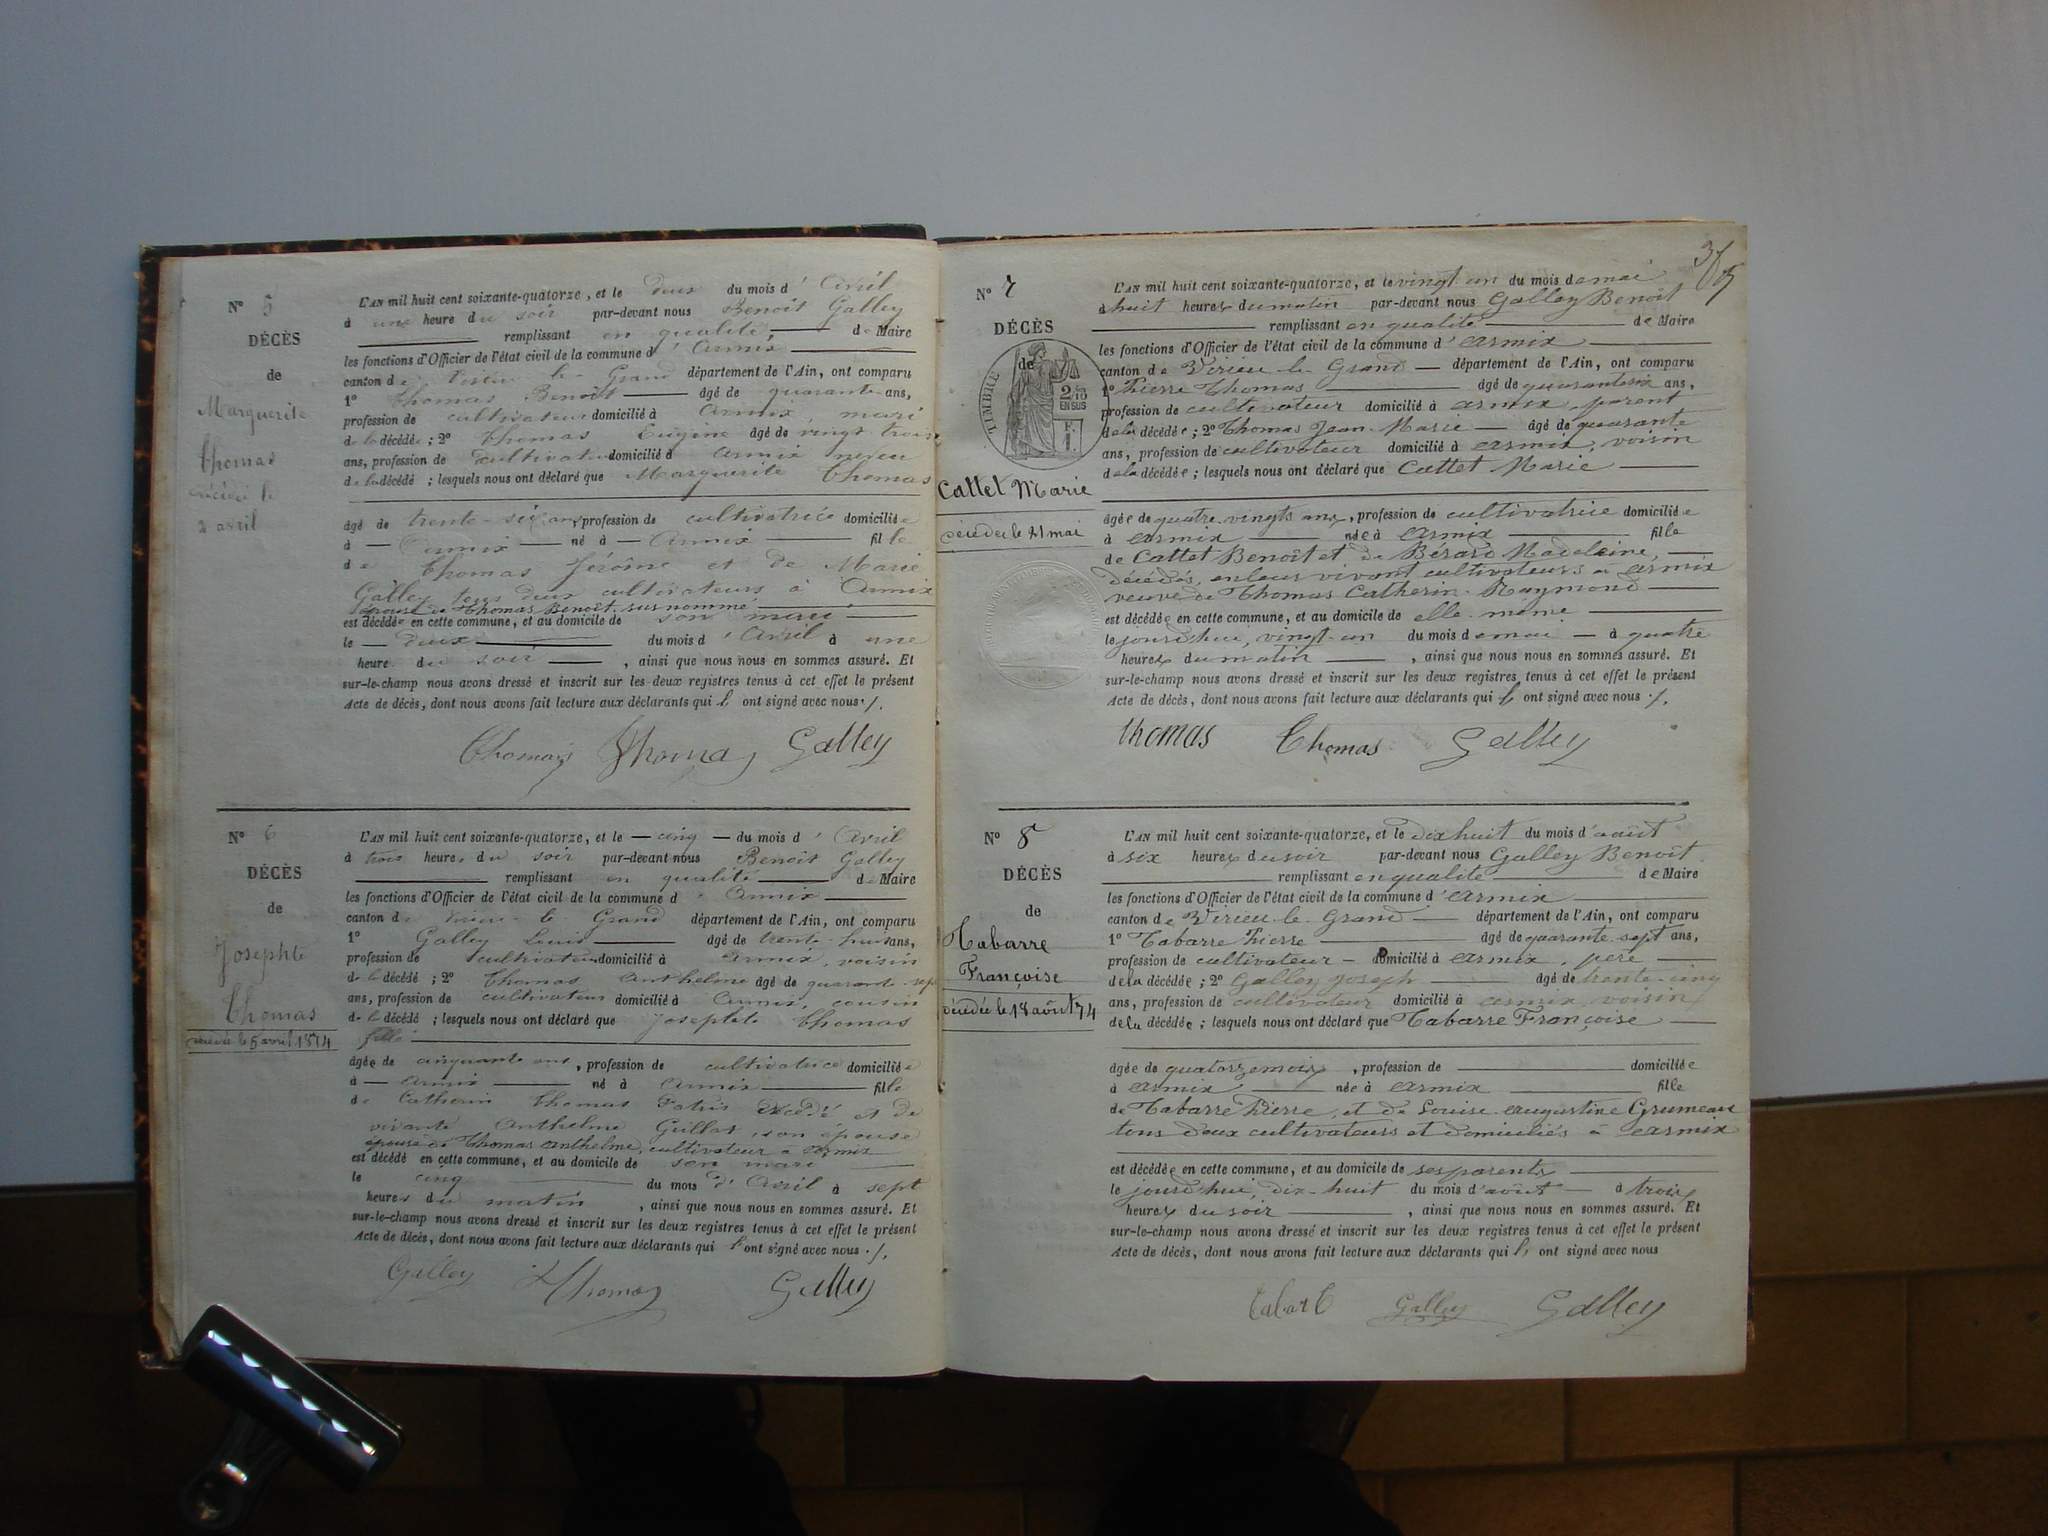 N° 5
DÉCÈS
de
Marguerite
Thomas
décédée le
2 avril
L'AN mil huit cent soixante-quatorze, et le deux du mois d'Avril
à une heure du soir par-devant nous Benoît Galley
remplissant en qualité de Maire
les fonctions d'Officier de l'état civil de la commune d'Armix
canton de Virieu-le-Grand département de l'Ain, ont comparu
1° Thomas Benoît âgé de quarante ans,
profession de cultivateur domicilié à Armix mari
de la décédée ; 2° Thomas Eugène âgé de vingt trois
ans, profession de cultivateur domicilié à Armix neveu
de la décédé ; lesquels nous ont déclaré que Marguerite Thomas
âgé de trente-six ans, profession de cultivatrice domiciliée
à Armix né à Armix fille
de Thomas Jérôme et de Marie
Galley tous deux cultivateurs à Armix
épouse de Thomas Benoît, sus nommé
est décédée en cette commune, et au domicile de son mari
le deux du mois d'Avril à une
heure du soir , ainsi que nous nous en sommes assuré. Et
sur-le-champ nous avons dressé et inscrit sur les deux registres tenus à cet effet le présent
Acte de décès, dont nous avons fait lecture aux déclarants qui ont signé avec nous ./.
Thomas Thomas Galley
N° 6
DÉCÈS
de
Josephte
Thomas
décédée le 5 avril 1874
L'AN mil huit cent soixante-quatorze, et le cinq du mois d'Avril
à trois heures du soir par-devant nous Benoît Galley
remplissant en qualité de Maire
les fonctions d'Officier de l'état civil de la commune d'Armix
canton de Virieu-le-Grand département de l'Ain, ont comparu
1° Galley Louis âgé de trente-huit ans,
profession de cultivateur domicilié à Armix, voisin
de la décédé ; 2° Thomas Anthelme âgé de quarante-sept
ans, profession de cultivateur domicilié à Armix, cousin
de la décédé ; lesquels nous ont déclaré que Josephte Thomas
fille
âgée de cinquante ans , profession de cultivatrice domiciliée
à Armix né à Armix fille
de Catherin Thomas décédé et de
vivante Anthelme Guillot, son épouse
épouse de Thomas Anthelme, cultivateur à Armix
est décédé en cette commune, et au domicile de son mari
le cinq du mois d'Avril à sept
heures du matin , ainsi que nous nous en sommes assuré. Et
sur-le-champ nous avons dressé et inscrit sur les deux registres tenus à cet effet le présent
Acte de décès, dont nous avons fait lecture aux déclarants qui ont signé avec nous ./.
Galley Thomas Galley
N° 7
DÉCÈS
de
TIMBRE
2/10
EN SUS
Cattet Marie
décédée le 21 mai
L'AN mil huit cent soixante-quatorze, et le vingt-un du mois de mai
à huit heures du matin par-devant nous Galley Benoît
remplissant en qualité de Maire
les fonctions d'Officier de l'état civil de la commune d'Armix
canton de Virieu-le-Grand département de l'Ain, ont comparu
1° Pierre Thomas âgé de quarante six ans,
profession de cultivateur domicilié à Armix, parent
de la décédée ; 2° Thomas Jean-Marie âgé de quarante
ans, profession de cultivateur domicilié à Armix, voisin
de la décédée ; lesquels nous ont déclaré que Cattet Marie
âgée de quatre-vingts ans, profession de cultivatrice domiciliée
à Armix née à Armix fille
de Cattet Benoît et de Bérard Madeleine,
décédés, en leur vivant cultivateurs à Armix
veuve de Thomas Catherin-Raymond
est décédée en cette commune, et au domicile de elle-même
le jourd'hui, vingt-un du mois de mai à quatre
heures du matin , ainsi que nous nous en sommes assuré. Et
sur-le-champ nous avons dressé et inscrit sur les deux registres tenus à cet effet le présent
Acte de décès, dont nous avons fait lecture aux déclarants qui ont signé avec nous ./.
Thomas Thomas Galley
N° 8
DÉCÈS
de
Tabarre
Françoise
décédée le 18 août 74
L'AN mil huit cent soixante-quatorze, et le dix huit du mois d'août
à six heures du soir par-devant nous Galley Benoît
remplissant en qualité de Maire
les fonctions d'Officier de l'état civil de la commune d'Armix
canton de Virieu-le-Grand département de l'Ain, ont comparu
1° Tabarre Pierre âgé de quarante-sept ans,
profession de cultivateur Domicilié à Armix, père
de la décédée ; 2° Galley Joseph âgé de trente-cinq
ans, profession de cultivateur domicilié à Armix, voisin
de la décédée ; lesquels nous ont déclaré que Tabarre Françoise
âgée de quatorze mois , profession de domiciliée
à Armix née à Armix fille
de Tabarre Pierre, et de Louise-Augustine Grumeau
tous deux cultivateurs et domiciliés à Armix
est décédée en cette commune, et au domicile de ses parents
le jourd'hui, dix-huit du mois d'août à trois
heures du soir , ainsi que nous nous en sommes assuré. Et
sur-le-champ nous avons dressé et inscrit sur les deux registres tenus à cet effet le présent
Acte de décès, dont nous avons fait lecture aux déclarants qui ont signé avec nous
Galley Galley